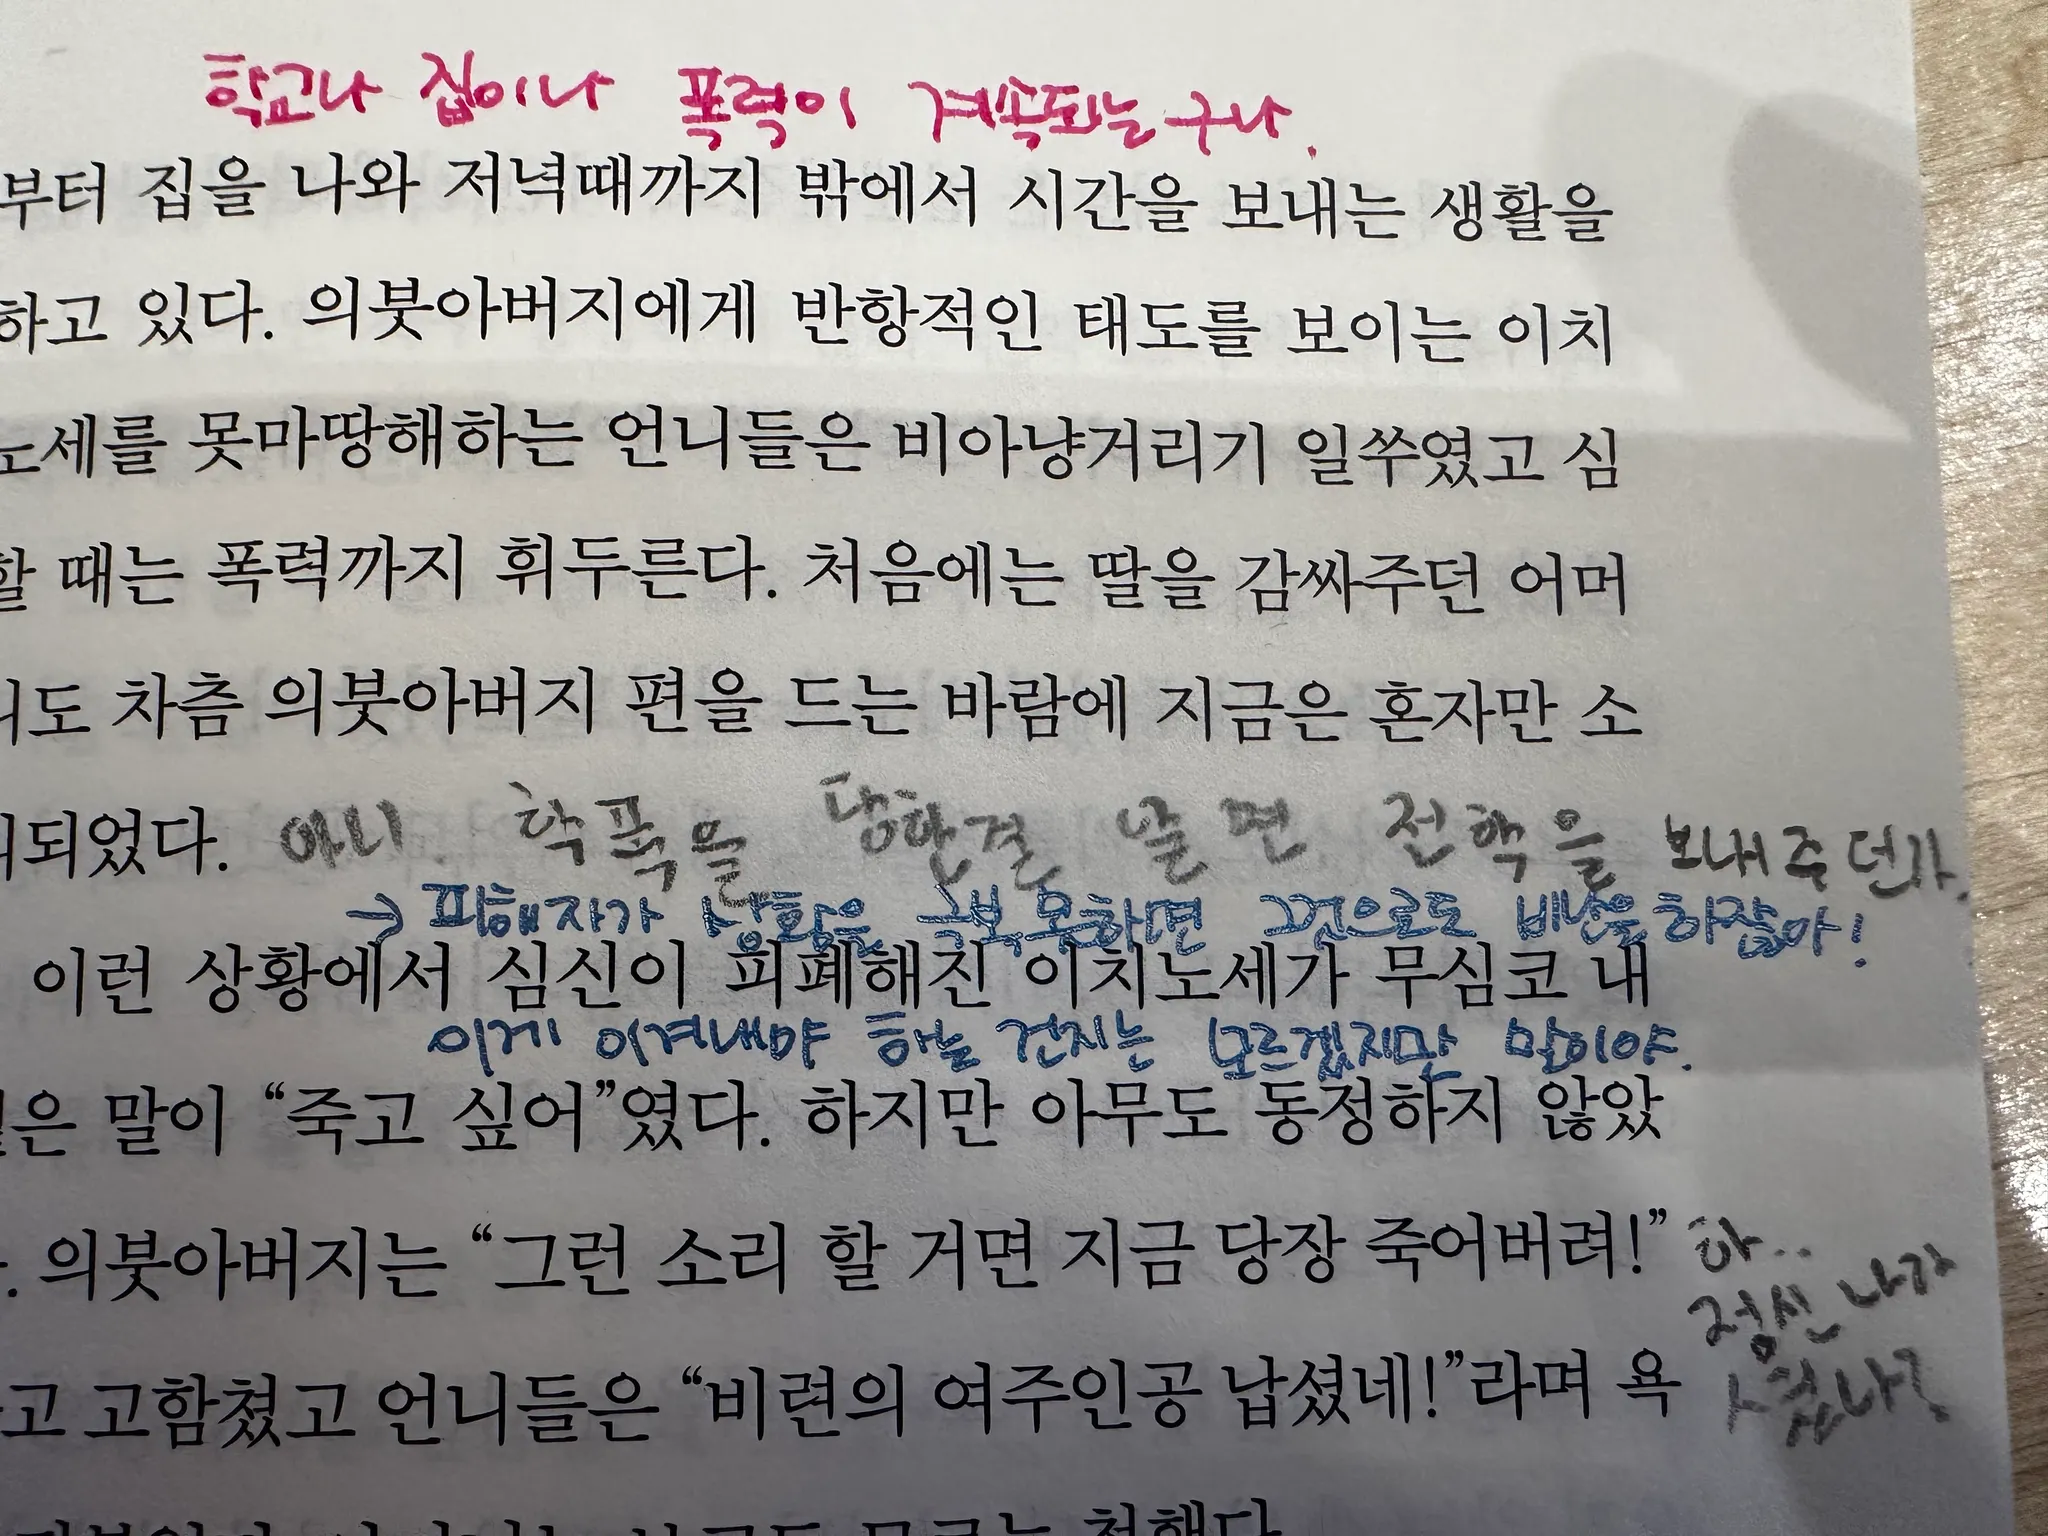 학교나 집이나 폭력이 계속되는구나.
부터 집을 나와 저녁때까지 밖에서 시간을 보내는 생활을
하고 있다. 의붓아버지에게 반항적인 태도를 보이는 이치
노세를 못마땅해하는 언니들은 비아냥거리기 일쑤였고 심
할 때는 폭력까지 휘두른다. 처음에는 딸을 감싸주던 어머
니도 차츰 의붓아버지 편을 드는 바람에 지금은 혼자만 소
되었다. 아니. 학폭을 당한걸 알면 전학을 보내주던가.
→ 피해자가 상황을 극복 못하면 그것으로도 비난을 하잖아!
이런 상황에서 심신이 피폐해진 이치노세가 무심코 내
이게 이겨내야 하는 건지는 모르겠지만 말이야.
은 말이 “죽고 싶어”였다. 하지만 아무도 동정하지 않았
. 의붓아버지는 “그런 소리 할 거면 지금 당장 죽어버려!” 하..
정신 나가
셨나?
고 고함쳤고 언니들은 “비련의 여주인공 납셨네!”라며 욕